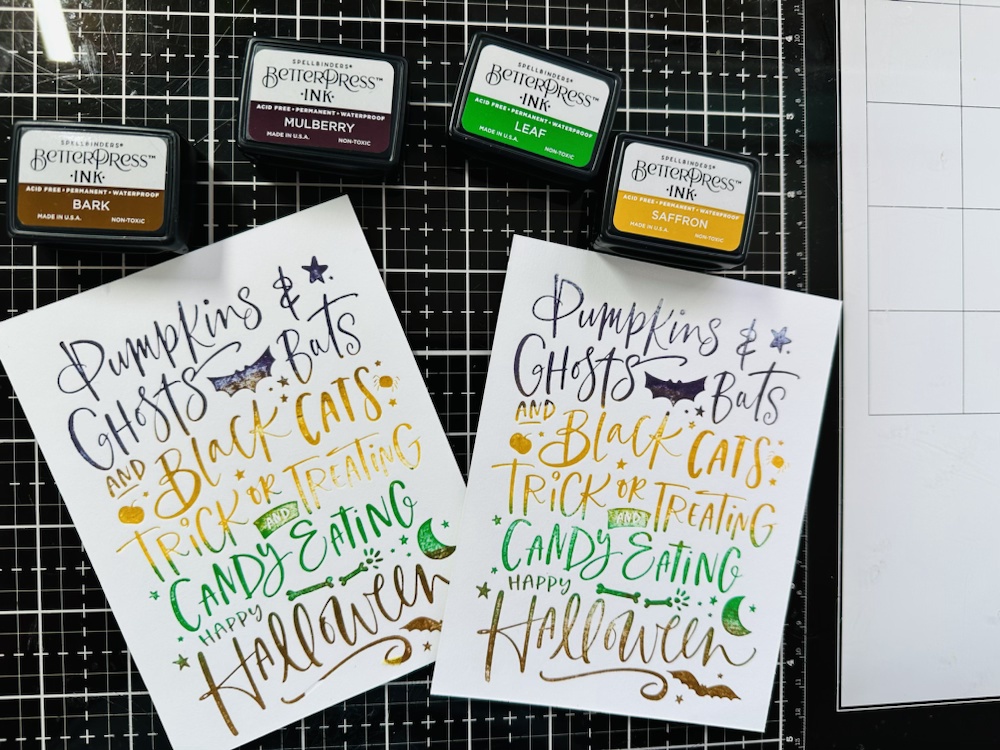 SPELLBINDERS®
BETTERPRESS™
·INK·
ACID FREE • PERMANENT • WATERPROOF
BARK
MADE IN U.S.A. NON-TOXIC
SPELLBINDERS®
BETTERPRESS™
·INK·
ACID FREE • PERMANENT • WATERPROOF
MULBERRY
MADE IN U.S.A. NON-TOXIC
SPELLBINDERS®
BETTERPRESS™
·INK·
ACID FREE • PERMANENT • WATERPROOF
LEAF
MADE IN U.S.A. NON-TOXIC
SPELLBINDERS®
BETTERPRESS™
·INK·
ACID FREE • PERMANENT • WATERPROOF
SAFFRON
MADE IN U.S.A. NON-TOXIC
Pumpkins &
GHOSTS Bats
AND Black CATS
TRICK OR TREATING
AND
CANDY EATING
HAPPY
Halloween
Pumpkins &
GHOSTS Bats
AND Black CATS
TRICK OR TREATING
AND
CANDY EATING
HAPPY
Halloween